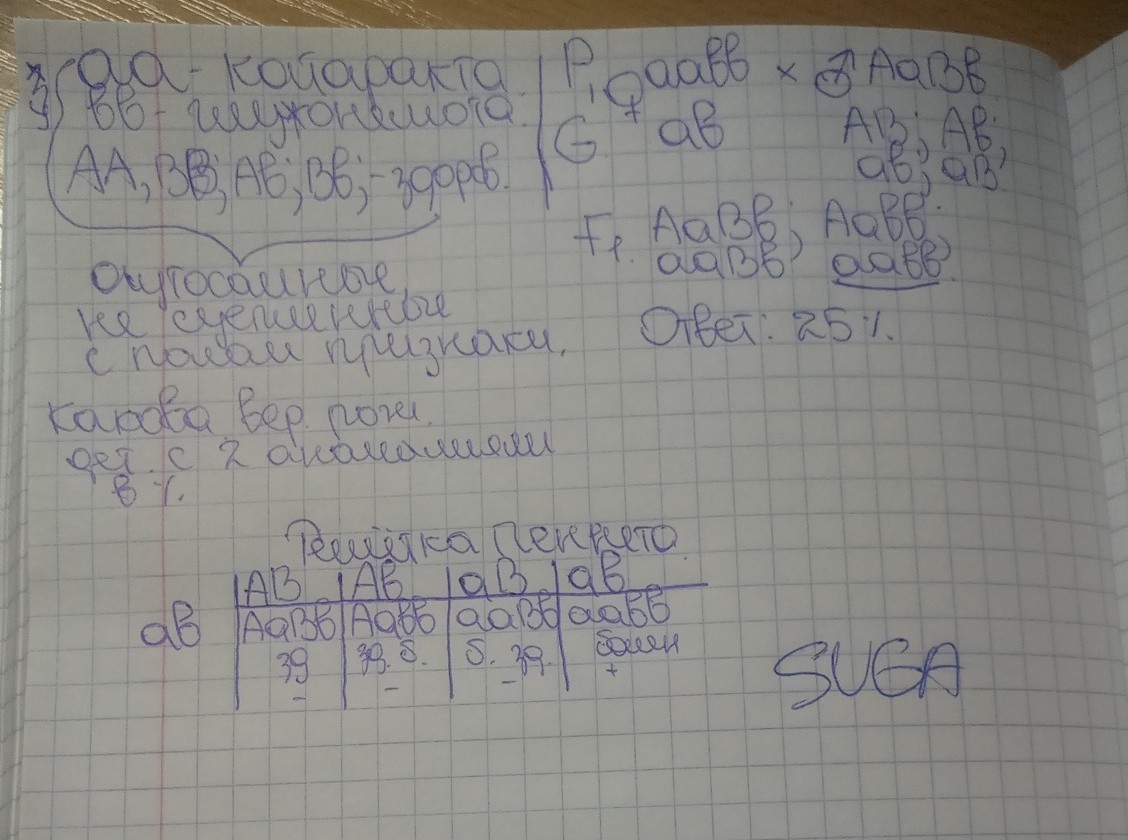 3) аа - катаракта
вв - глухонемота
АА, ВВ; Ав; Вв; - здоров.
аутосомные,
не сцепленные
с полом признаки.
Какова вер. рож.
дет. с 2 аномалиями
в %.
P, ♀ аавв × ♂ АаВв
G ав АВ; Ав;
ав; аВ
F₁. АаВв; Аавв;
ааВв; аавв.
Ответ: 25%.
Решётка Пеннета.
АВ Ав аВ ав
ав АаВв Аавв ааВв аавв
зд зд. б. б. зд. болен
- - - +
SUGA